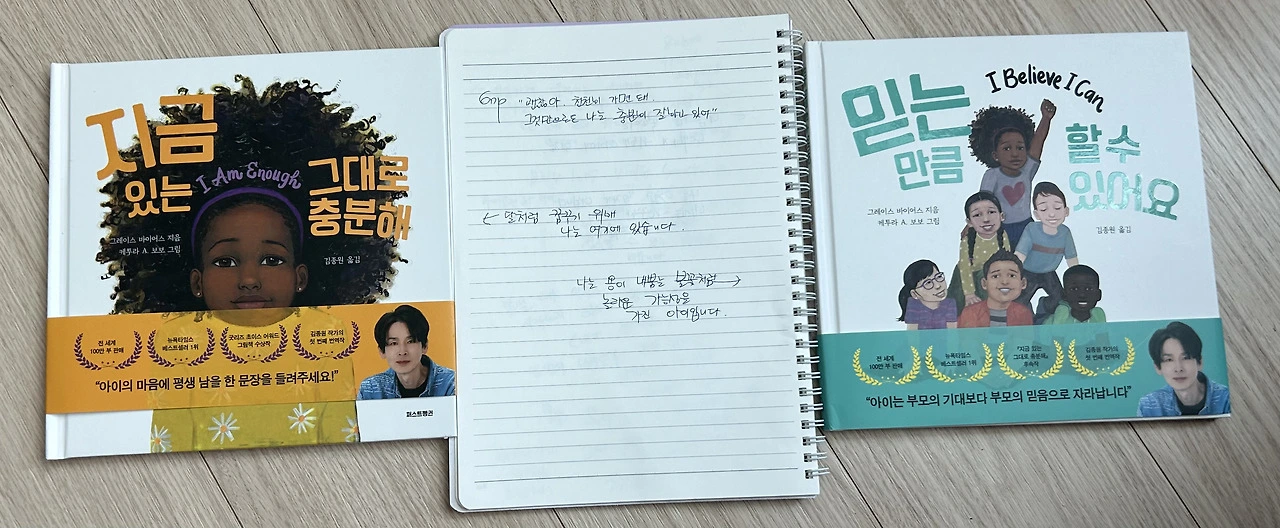 지금
있는
I Am Enough
그대로
충분해
그레이스 바이어스 지음
케투라 A. 보보 그림
김종원 옮김
전 세계
100만 부 판매
뉴욕타임스
베스트셀러 1위
굿리즈 초이스 어워드
그림책 수상작
김종원 작가의
첫 번째 번역작
“아이의 마음에 평생 남을 한 문장을 들려주세요!”
퍼스트펭귄
"괜찮아. 천천히 가면 돼.
그것만으로도 나는 충분히 잘하고 있어"
← 말처럼 꿈꾸기 위해
나는 여기에 있습니다.
나는 봄이 내뿜는 분꽃처럼 →
놀라운 가능성을
가진 아이입니다.
믿는
만큼
I Believe I Can
할 수
있어요
그레이스 바이어스 지음
케투라 A. 보보 그림
김종원 옮김
전 세계
100만 부 판매
뉴욕타임스
베스트셀러 1위
『지금 있는
그대로 충분해』
후속작
김종원 작가의
첫 번째 번역작
“아이는 부모의 기대보다 부모의 믿음으로 자라납니다”